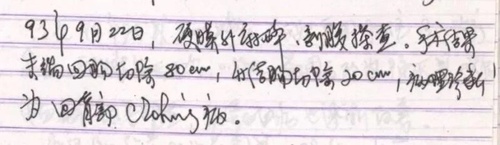 93年9月22日，硬膜外麻醉，剖腹探查。手术结果
末端回肠切除80cm，升结肠切除20cm，病理诊断
为回盲部Crohn's病。